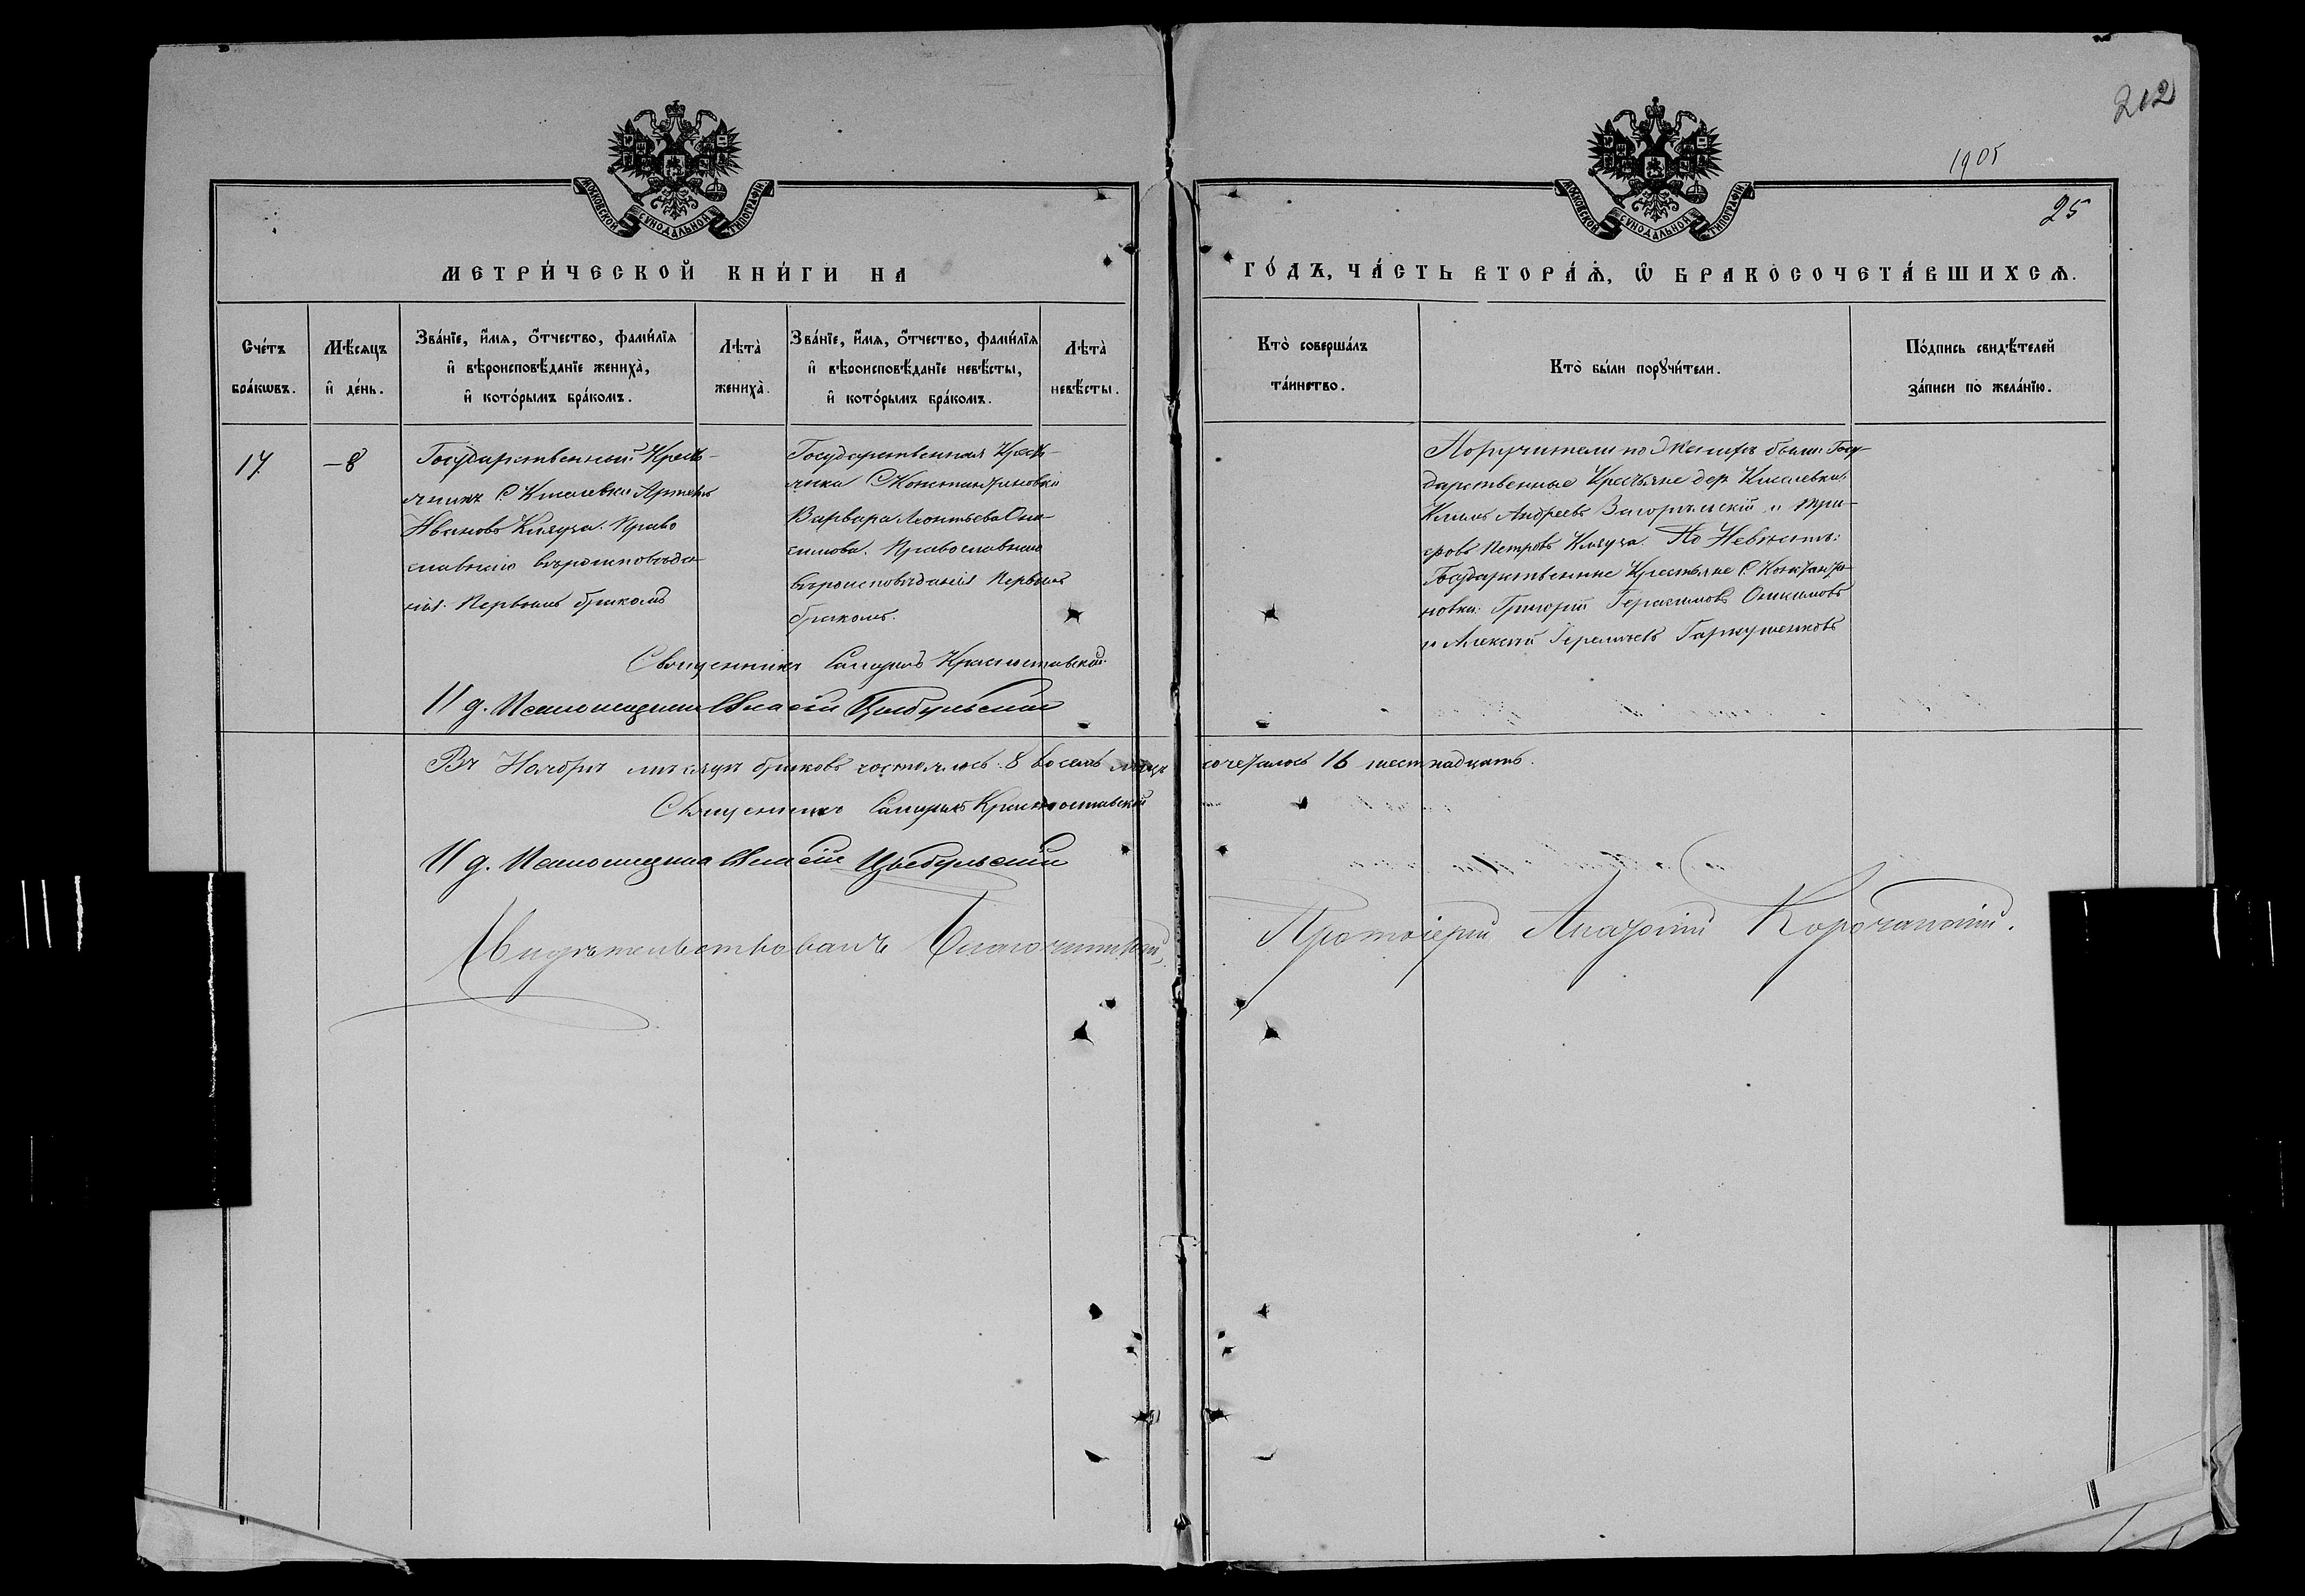 212
1905
25
МОСКОВСКОЙ СѴНОДАЛЬНОЙ ТИПОГРАФІИ
МОСКОВСКОЙ СѴНОДАЛЬНОЙ ТИПОГРАФІИ
МЕТРИ́ЧЕСКОЙ КНИ́ГИ НА
ГО́ДЪ, ЧА́СТЬ ВТОРА́Ѧ, Ѡ БРАКОСОЧЕТА́ВШИХСѦ.
Сче́тъ
бра́кѡвъ.
Мѣ́сяцъ
и҆ де́нь.
Зва́нїе, и҆́мя, ѻ҆́тчество, фами́лїя
и҆ вѣроисповѣ́данїе жениха̀,
и҆ кото́рымъ бра́комъ.
Лѣта̀
жениха̀.
Зва́нїе, и҆́мя, ѻ҆́тчество, фами́лїя
и҆ вѣроисповѣ́данїе невѣ́сты,
и҆ кото́рымъ бра́комъ.
Лѣта̀
невѣ́сты.
Кто̀ соверша́лъ
та́инство.
Кто̀ бы́ли порꙋчи́тели.
По́дпись свидѣ́телей
за́писи по жела́нїю.
17
–8
Государственный Кресть-
янинъ С. Киселевки
Ивановъ Кляуза. Право
славнаго вѣроисповѣда-
нія. Первымъ бракомъ
Государственная Кресть-
янка С. Константиновки
Варвара Леонтьева Они-
симова. Православнаго
вѣроисповѣданія Первымъ
бракомъ.
Поручители по Женихѣ были: Госу-
дарственные Крестьяне дер. Киселевки,
Климъ Андреевъ и Три-
фонъ Петровъ Кляуза. По Невѣстѣ:
Государственные Крестьяне С. Константи-
новки: Григорій Герасимовъ Онисимовъ
и Алексѣй
Священникъ Красноставскій
И д. Псаломщика Цыбульскій
Въ Ноябрѣ мѣсяцѣ браковъ состоялось 8 восемь
сочеталось 16 шестнадцать.
Священникъ Красноставскій
И д. Псаломщика Цыбульскій
Свидѣтельствовалъ Благочинный,
Протоіерей Анатолій Корочанскій.